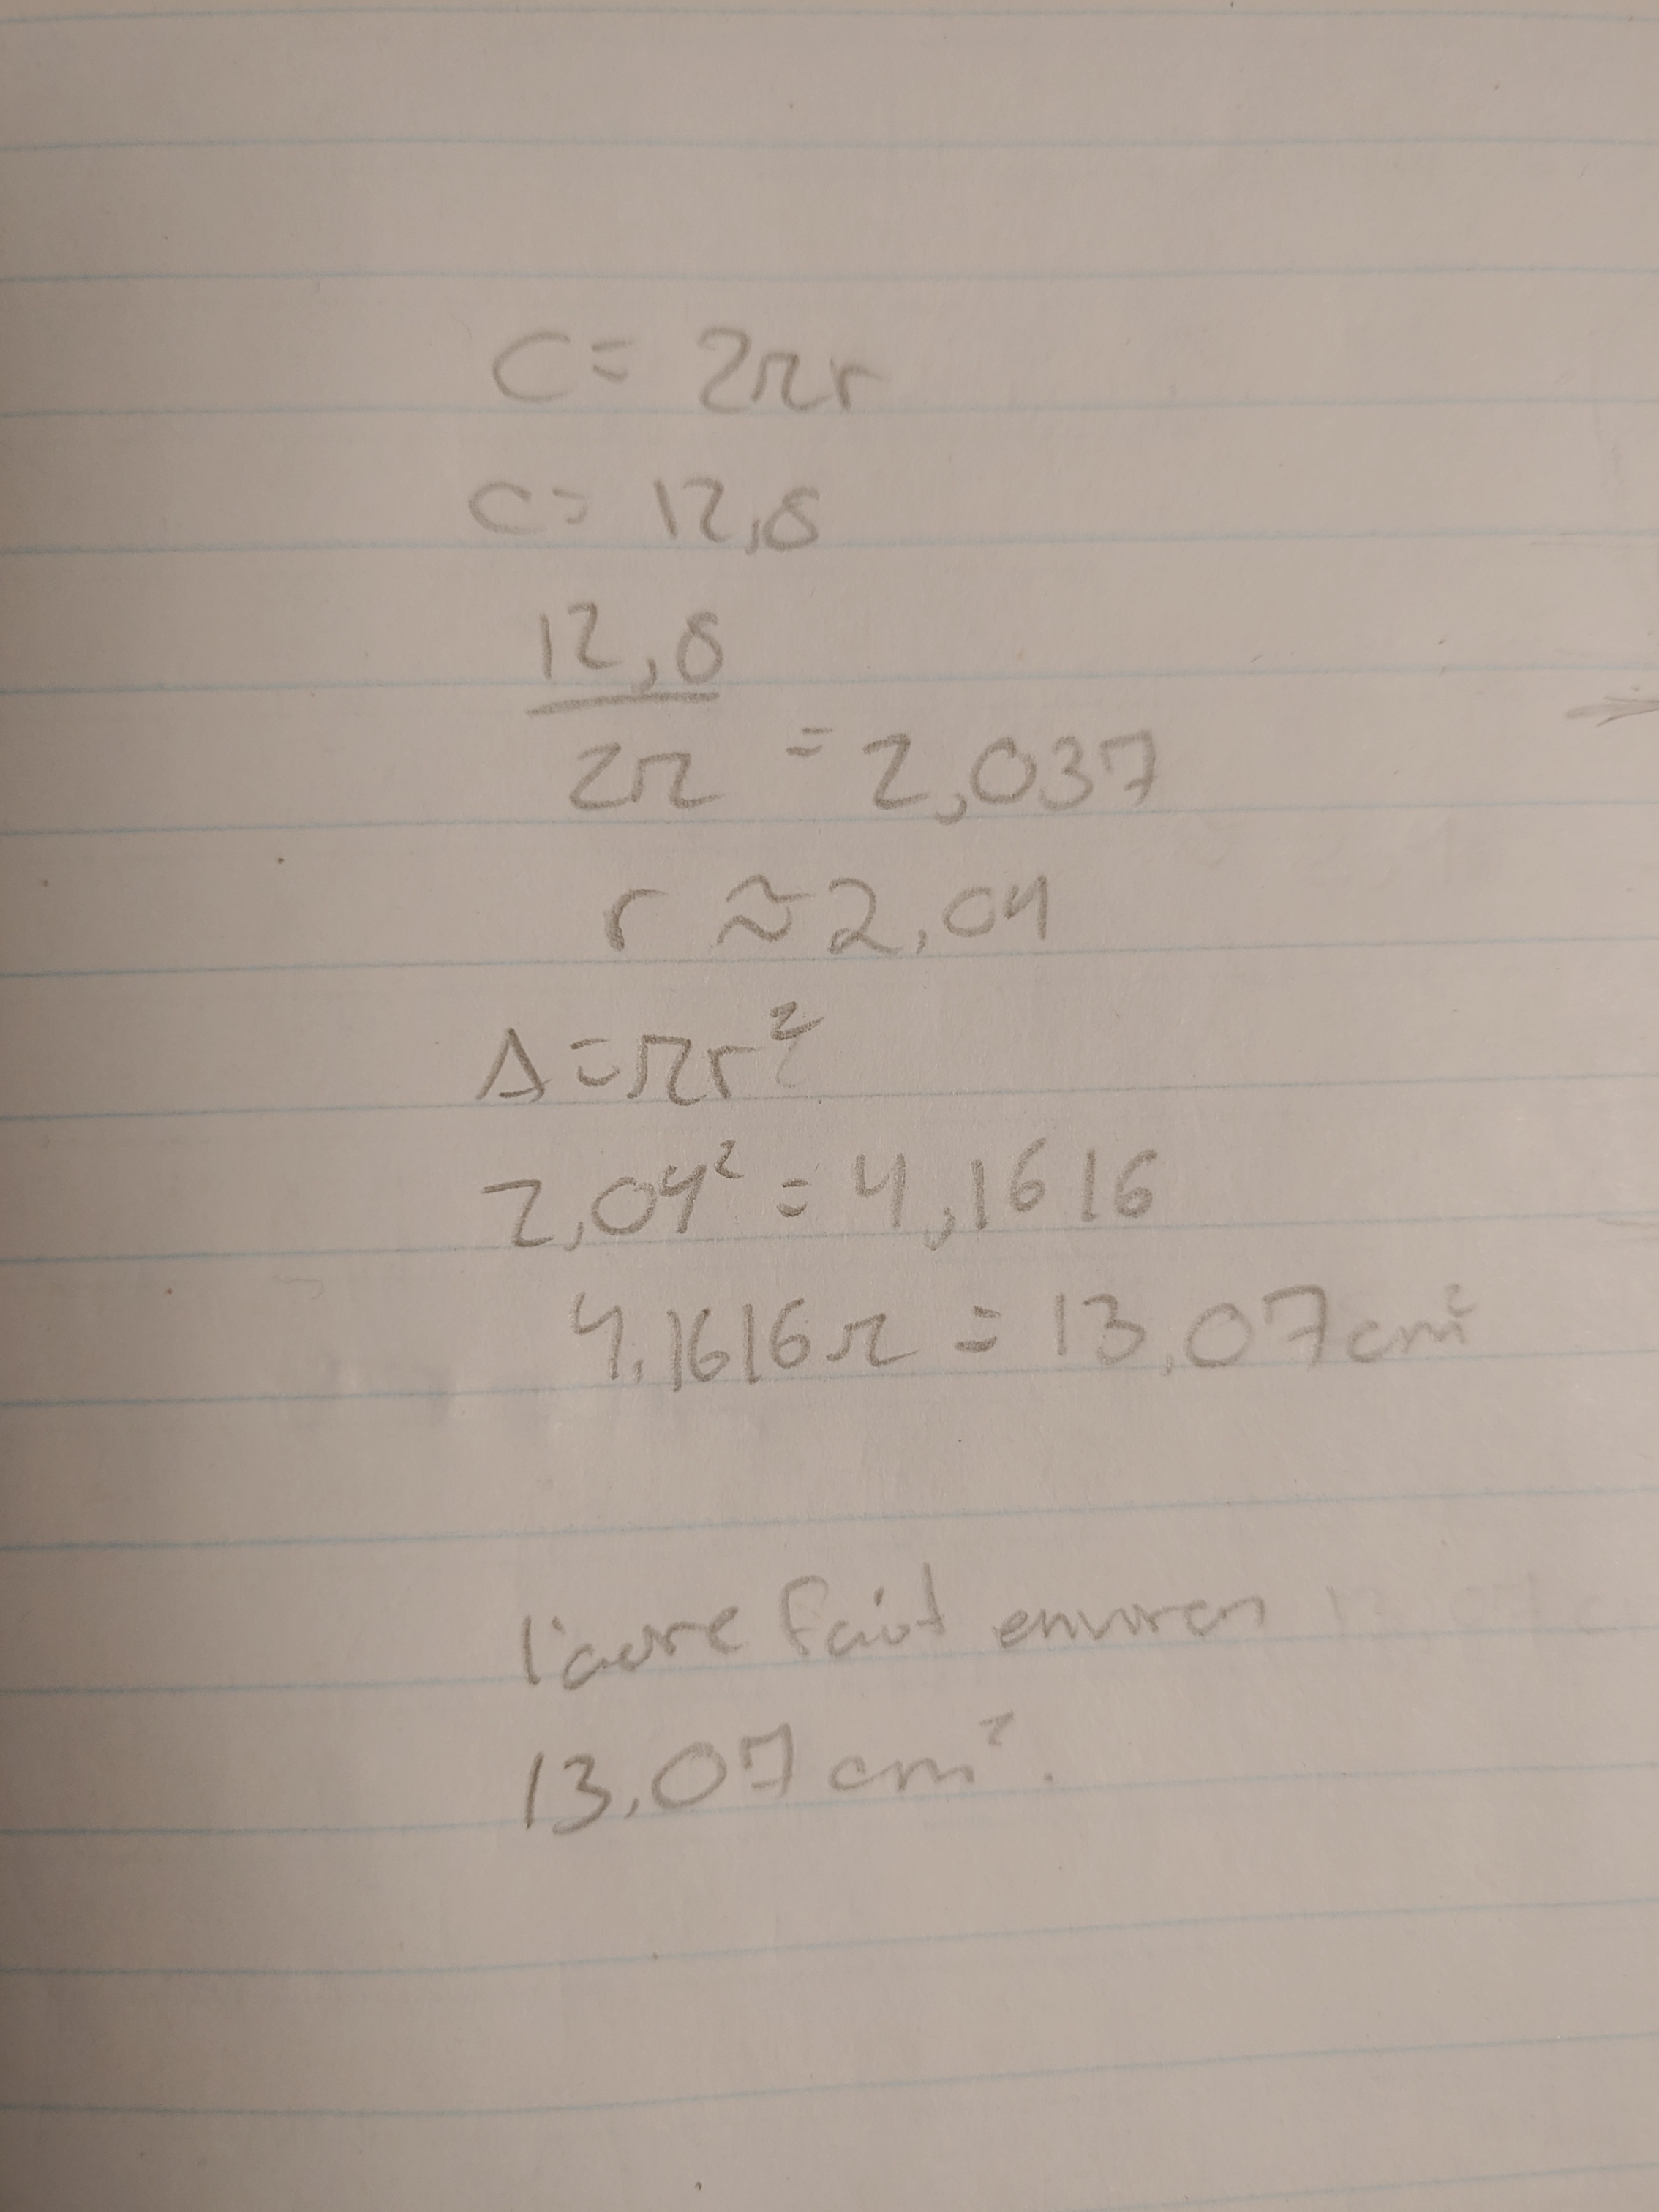 C = 2πr
C = 12,8
12,8
2π = 2,037
r ≈ 2,04
A = πr²
2,04² = 4,1616
4,1616π = 13,07 cm²
l'aire fait environ
13,07 cm².